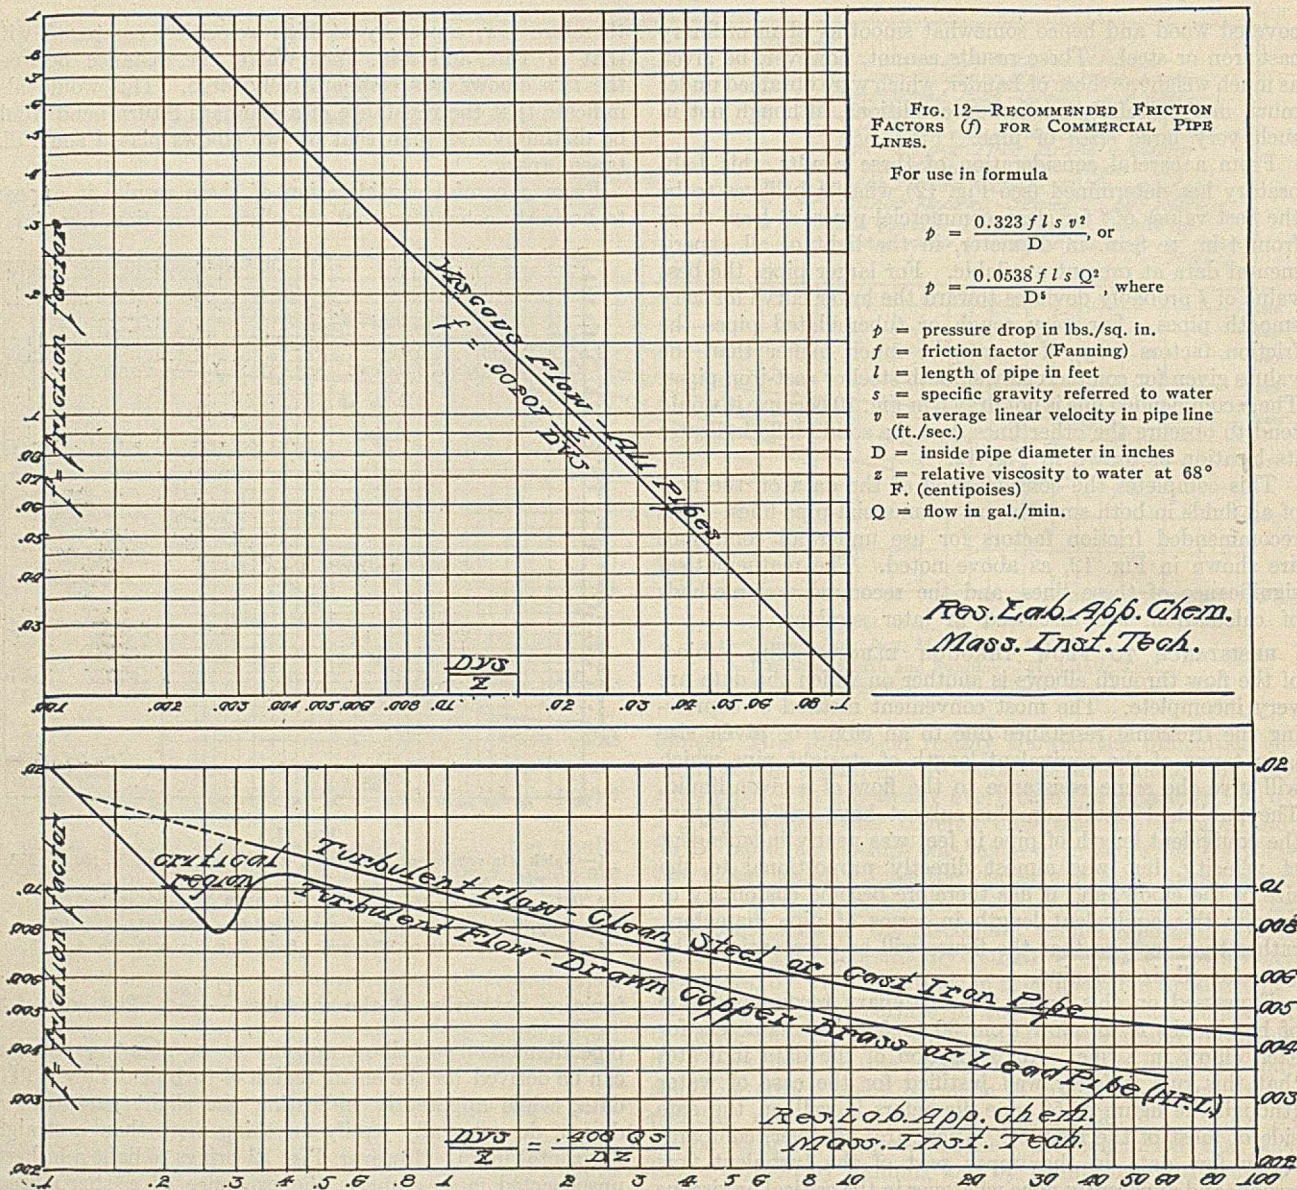 FIG. 12—RECOMMENDED FRICTION
FACTORS (f) FOR COMMERCIAL PIPE
LINES.
For use in formula
p = 0.323 f l s v² / D, or
p = 0.0538 f l s Q² / D⁵, where
p = pressure drop in lbs./sq. in.
f = friction factor (Fanning)
l = length of pipe in feet
s = specific gravity referred to water
v = average linear velocity in pipe line
(ft./sec.)
D = inside pipe diameter in inches
z = relative viscosity to water at 68°
F. (centipoises)
Q = flow in gal./min.
Res. Lab. App. Chem.
Mass. Inst. Tech.
f = friction factor
.1
.8
.7
.6
.5
.4
.3
.2
.1
.08
.07
.06
.05
.04
.03
Viscous Flow - All Pipes
f = .00207 Z / DVS
DVS / Z
.001 .002 .003 .004 .005 .006 .008 .01 .02 .03 .04 .05 .06 .08 .1
f = friction factor
.02
.01
.008
.006
.005
.004
.003
.002
critical
region
Turbulent Flow - Clean Steel or Cast Iron Pipe
Turbulent Flow - Drawn Copper Brass or Lead Pipe (M.P.I.)
.02
.01
.008
.006
.005
.004
.003
.002
Res. Lab. App. Chem.
Mass. Inst. Tech.
DVS / Z = .408 QS / DZ
.1 .2 .3 .4 .5 .6 .8 1 2 3 4 5 6 8 10 20 30 40 50 60 80 100